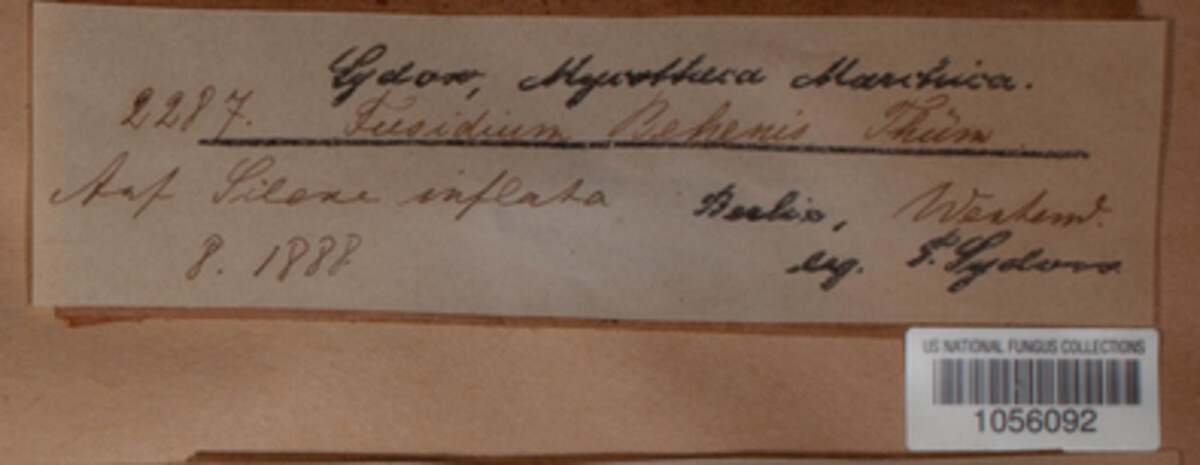 Sydow, Mycotheca Marchica.
2287. Fusidium Behenis Thüm
Auf Silene inflata Berlin, Westend.
8. 1888 leg. P. Sydow
US NATIONAL FUNGUS COLLECTIONS
1056092